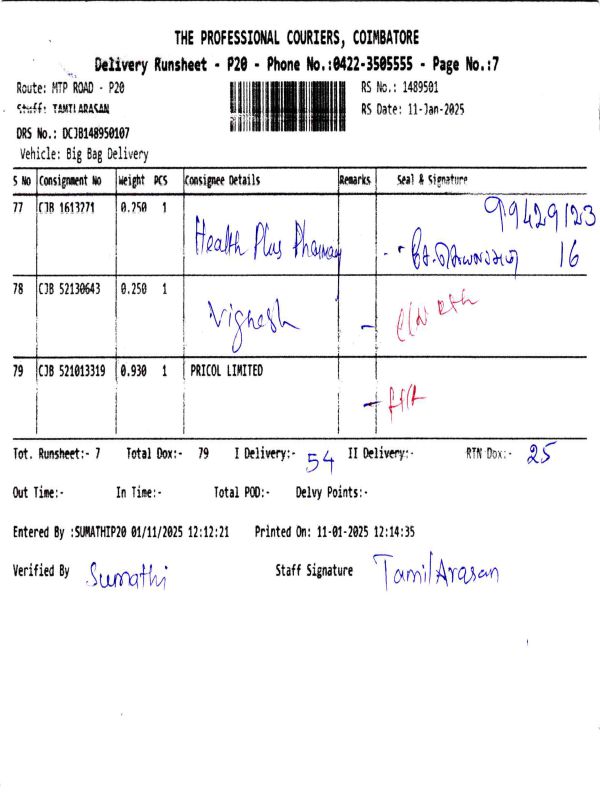 THE PROFESSIONAL COURIERS, COIMBATORE
Delivery Runsheet - P20 - Phone No.:0422-3505555 - Page No.:7
Route: MTP ROAD - P20 RS No.: 1489501
Staff: TAMILARASAN RS Date: 11-Jan-2025
DRS No.: DCJB148950107
Vehicle: Big Bag Delivery
S No Consignment No Weight PCS Consignee Details Remarks Seal & Signature
77 CJB 1613271 0.250 1 Health Plus Pharmacy 99429123
16
78 CJB 52130643 0.250 1 Vignesh -
79 CJB 521013319 0.930 1 PRICOL LIMITED -
Tot. Runsheet:- 7 Total Dox:- 79 I Delivery:- 54 II Delivery:- RTN Dox:- 25
Out Time:- In Time:- Total POD:- Delvy Points:-
Entered By :SUMATHIP20 01/11/2025 12:12:21 Printed On: 11-01-2025 12:14:35
Verified By Sumathi Staff Signature TamilArasan